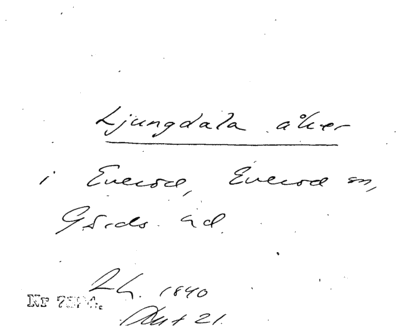 Ljungdala åker
i Everöd, Everöd sn,
Gärds hd.
Lh. 1840
Akt 21.
Nr